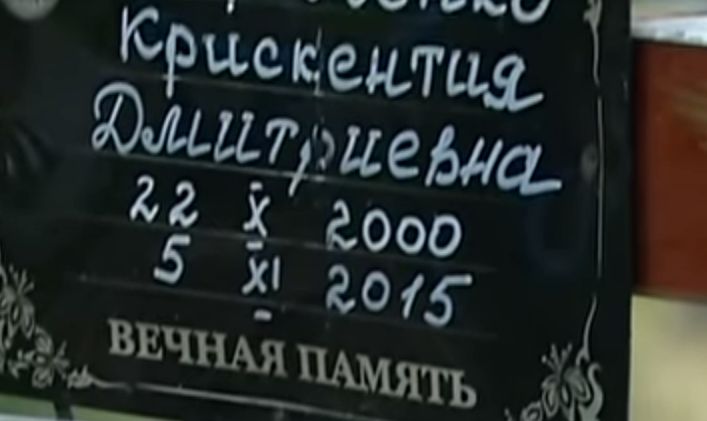 Крискентия
Дмитриевна
22 X 2000
5 XI 2015
ВЕЧНАЯ ПАМЯТЬ